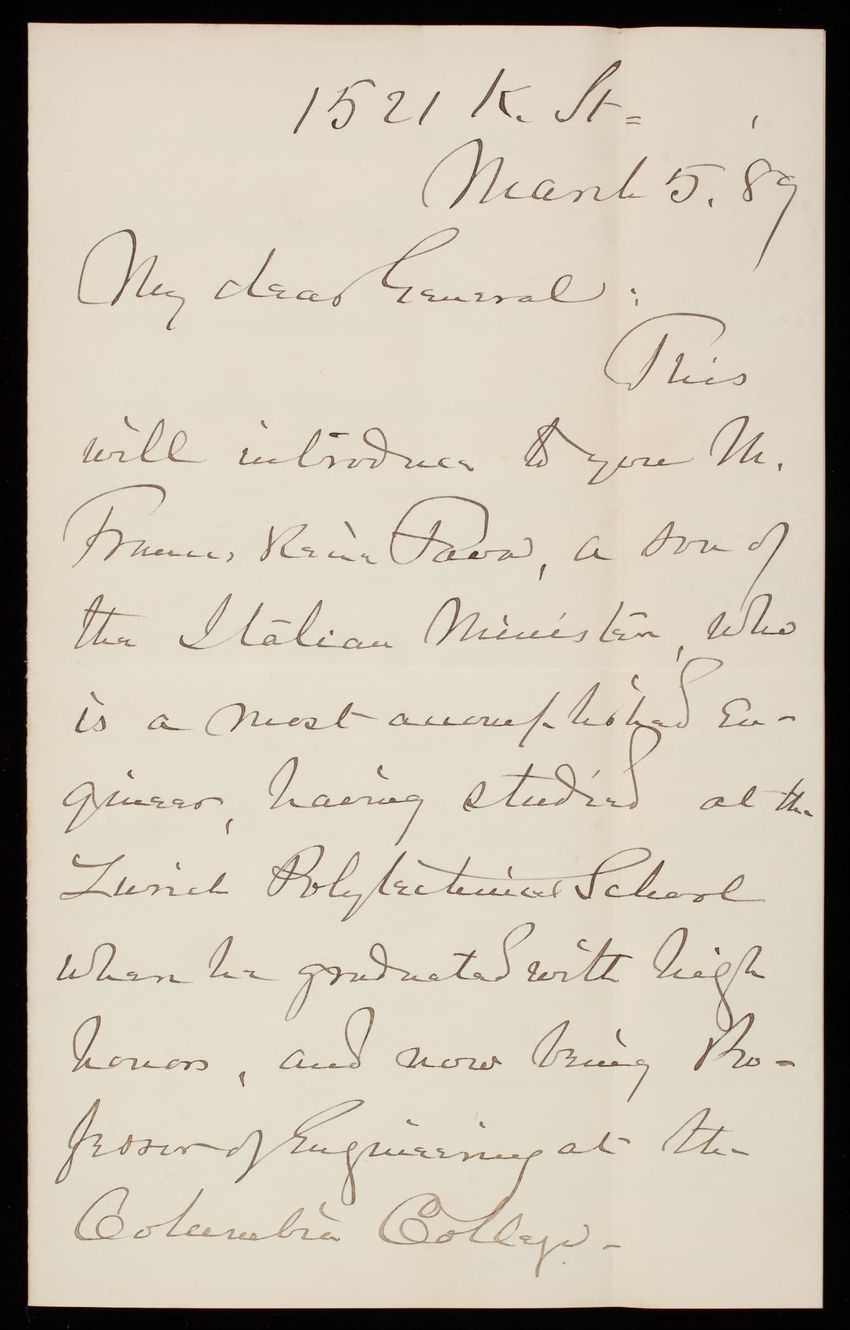 1521 K. St=
March 5. '89
My dear General:
This
will introduce to you M.
Francis Reine Fava, a son of
the Italian Minister, who
is a most accomplished En-
gineer, having studied at the
Zurich Polytechnical School
when he graduated with high
honors, and now being Pro-
fessor of Engineering at the
Columbia College.-